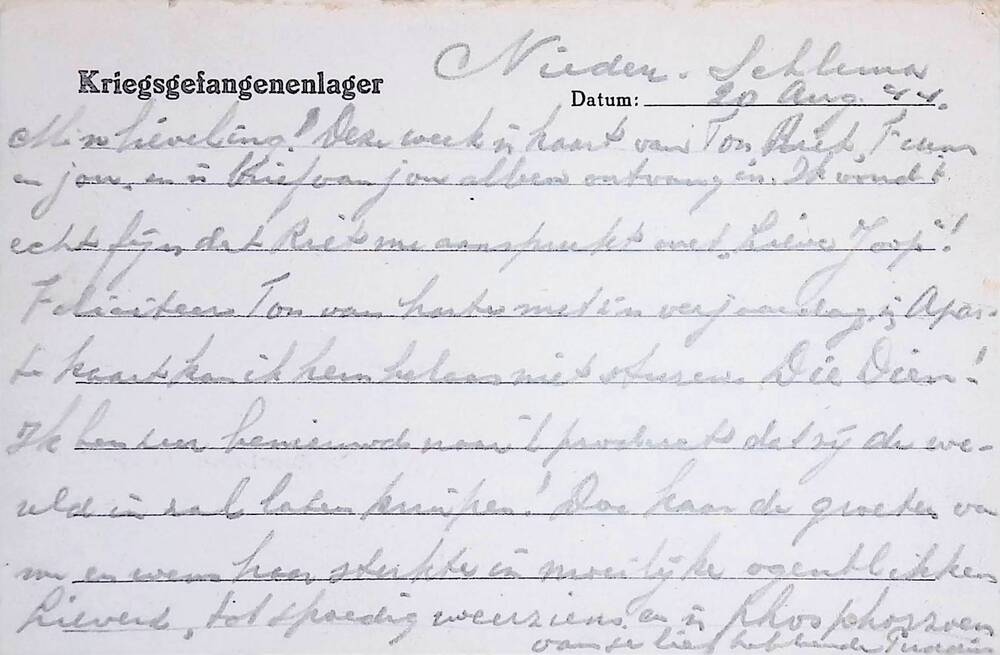 Kriegsgefangenenlager
Nieder-Schlema
Datum: 20 Aug. 44.
Mijn lieveling! Deze week 'n kaart van Ton, Riet,
en jou, en 'n brief van jou alleen ontvangen. Ik vond 't
echt fijn dat Riet me aanspreekt met „Lieve Joop"!
Feliciteer Ton van harte met z'n verjaardag, 'n Apar-
te kaart kan ik hem helaas niet sturen. Die Dien!
Ik ben zeer benieuwd naar 't product dat zij de we-
reld in zal laten kruipen! Doe haar de groeten van
me en wens haar sterkte in moeilijke ogenblikken
Lieverd, tot spoedig weerziens en 'n phosphorzoen
van je liefhebbende